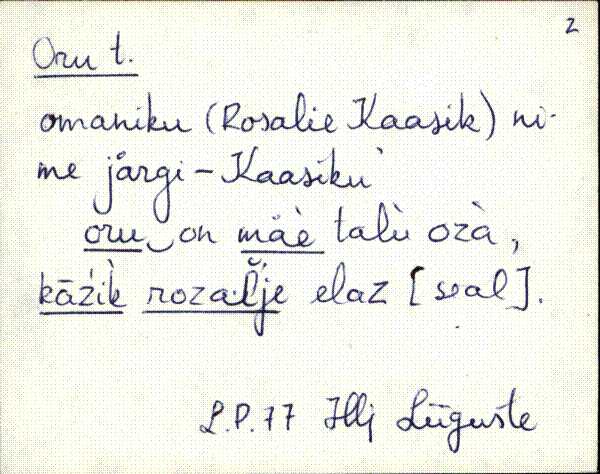 2
Oru t.
omaniku (Rosalie Kaasik) ni-
me järgi - Kaasiku
oru on mäè talù ozà,
kāzìk rozal̆je elaz [seal].
L.P. 77 Illj Lüguste